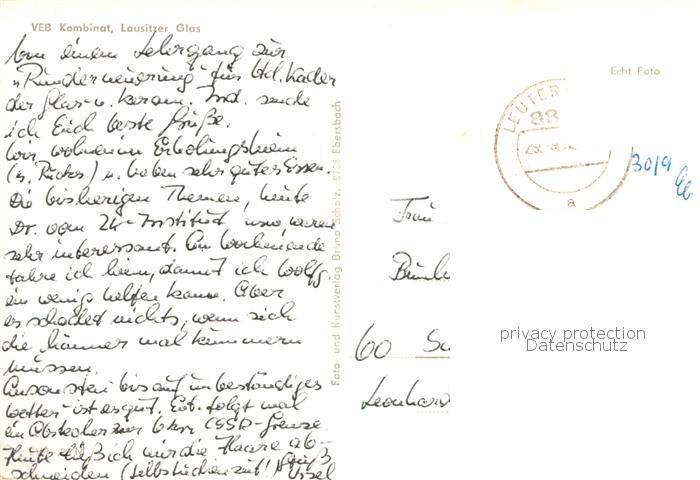 VEB Kombinat, Lausitzer Glas
Von einem Lehrgang zur
"Runderneuerung" für ltd. Kader
der Glas- u. keram. Ind. sende
ich Euch beste Grüße.
Wir wohnen im Erholungsheim
(s. Rücks.) u. haben sehr gutes Essen.
Die bisherigen Themen, heute
Dr. vom ZK-Institut usw, waren
sehr interessant. Am Wochenende
fahre ich heim, damit ich Wolfg.
ein wenig helfen kann. Aber
es schadet nichts, wenn sich
die Männer mal kümmern
müssen.
Ansonsten bis auf unbeständiges
Wetter ist es gut. Evt. folgt mal
ein Abstecher zur 6 km CSSR-Grenze.
Heute ließ ich mir die Haare ab-
schneiden (selbst schon zut!) Gruß
Ursel
Foto- und Kunstverlag Bruno Scholz, 8705 Ebersbach
Echt Foto
LEUTER
88
a
30/9
Frau
60
Leonhard
privacy protection
Datenschutz